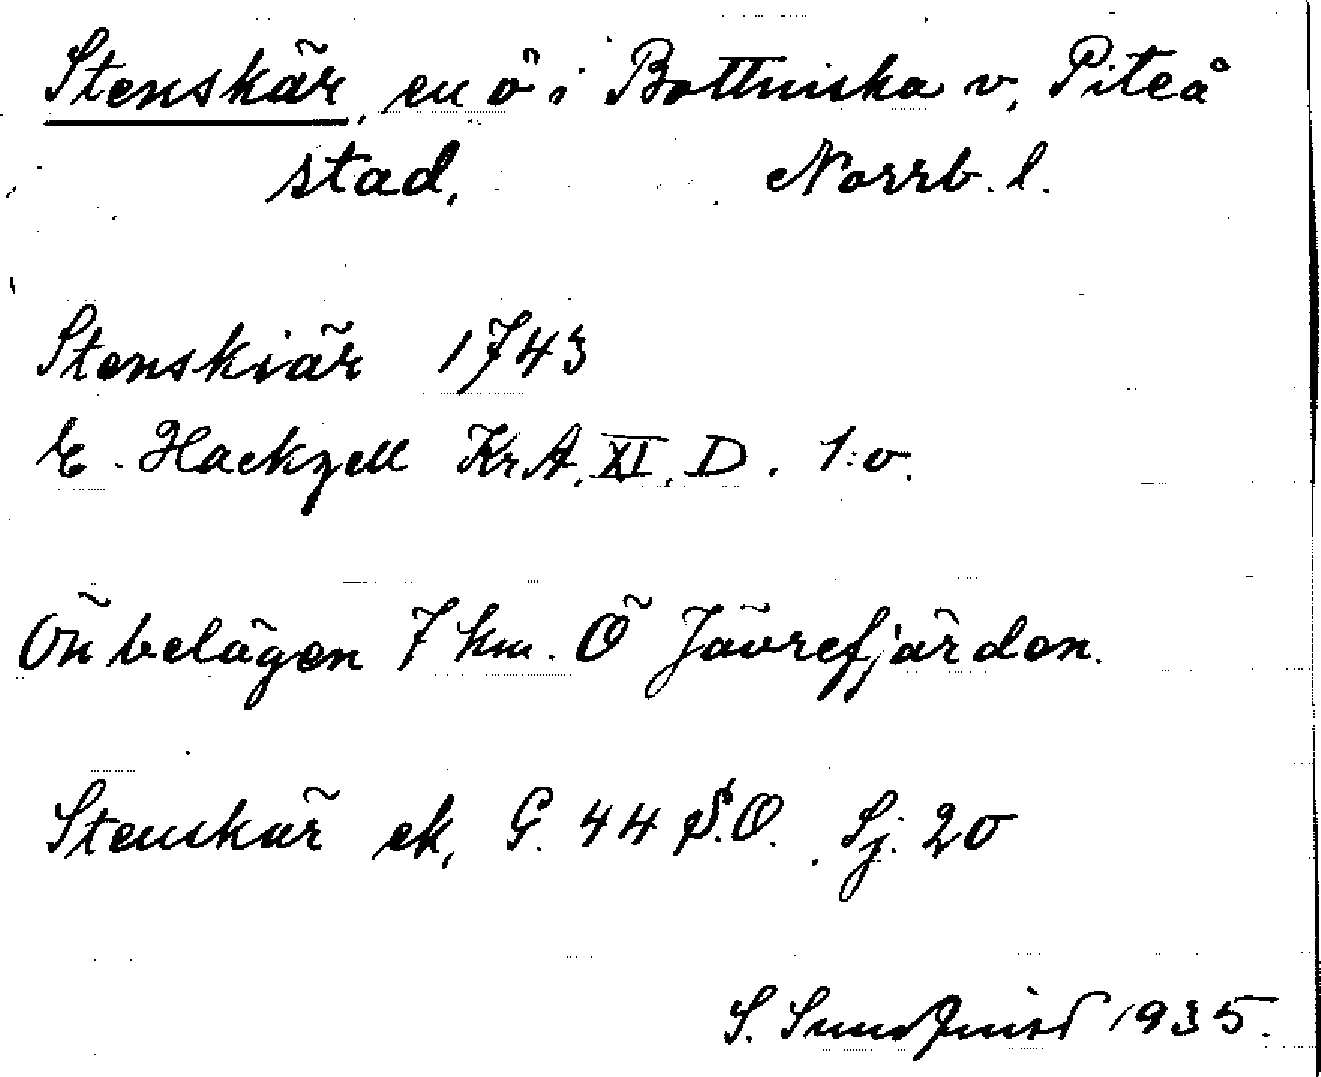 Stenskär, en ö i Bottniska v, Piteå
stad, Norrb. l.
Stenskiär 1743
E. Hackzell Kr. A. XI. D. 1:o.
Ön belägen 7 km. Ö Jävrefjärden.
Stenskär ek, G. 44 S.O. Sj. 20
S. Sundquist 1935.